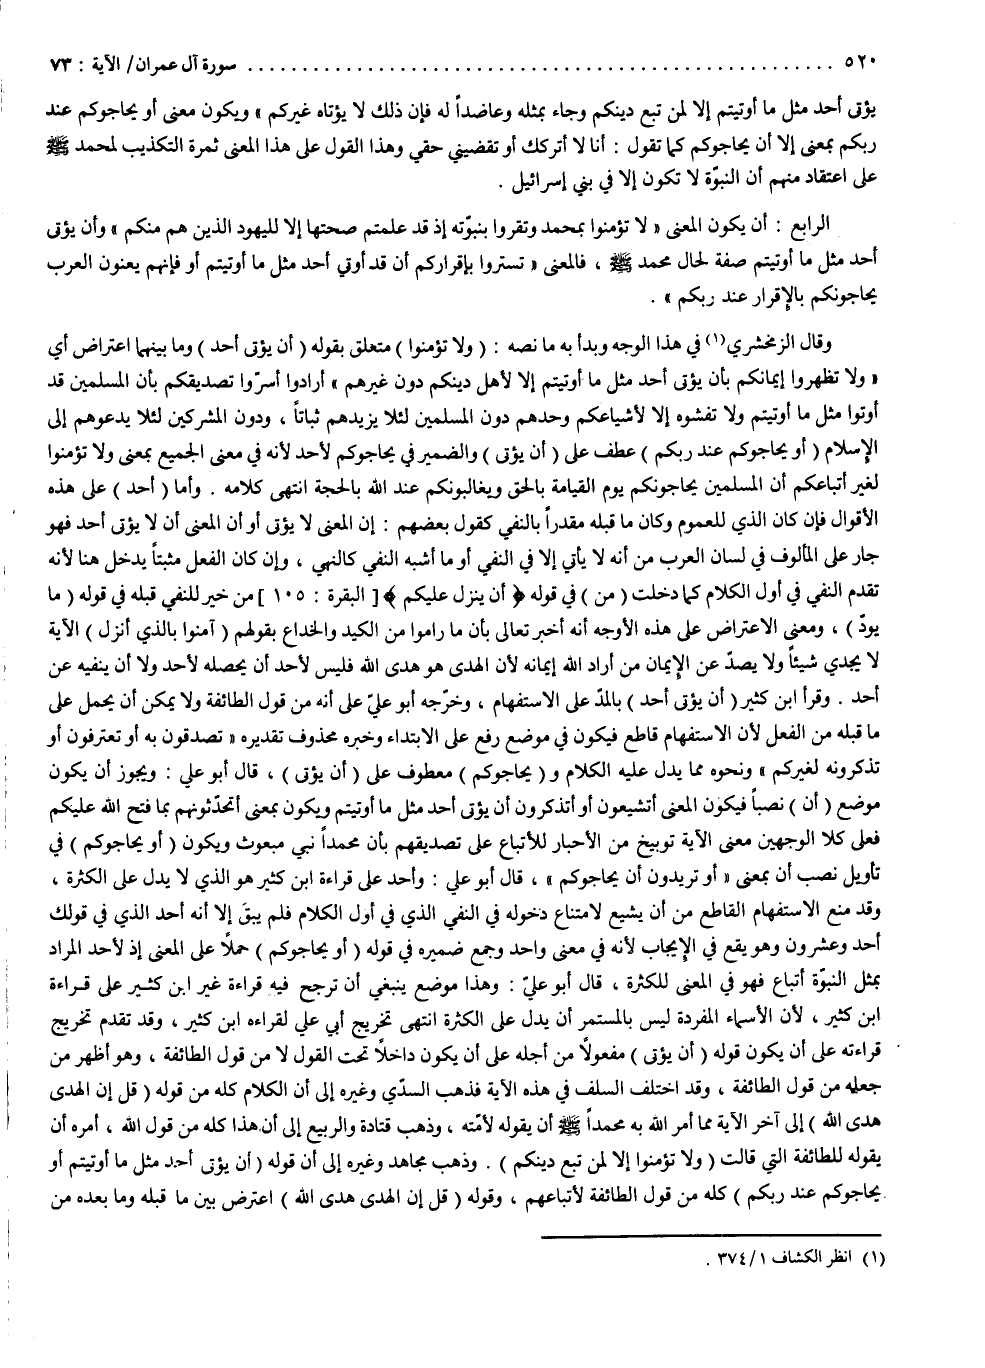 ٥٢٠ . . . . . . . . . . . . . . . . . . . . . . . . . . . . . . سورة آل عمران/ الآية : ٧٣
يؤتى أحد مثل ما أوتيتم إلا لمن تبع دينكم وجاء بمثله وعاضداً له فإن ذلك لا يؤتاه غيركم » ويكون معنى أو يحاجوكم عند
ربكم بمعنى إلا أن يحاجوكم كما تقول : أنا لا أتركك أو تقضيني حقي وهذا القول على هذا المعنى ثمرة التكذيب لمحمد ﷺ
على اعتقاد منهم أن النبوّة لا تكون إلا في بني إسرائيل .
الرابع : أن يكون المعنى « لا تؤمنوا بمحمد وتقروا بنبوّته إذ قد علمتم صحتها إلا لليهود الذين هم منكم » وأن يؤتى
أحد مثل ما أوتيتم صفة لحال محمد ﷺ ، فالمعنى « تستروا بإقراركم أن قد أوتي أحد مثل ما أوتيتم أو فإنهم يعنون العرب
يحاجونكم بالإقرار عند ربكم » .
وقال الزمخشري(١) في هذا الوجه وبدأ به ما نصه : ( ولا تؤمنوا ) متعلق بقوله ( أن يؤتى أحد ) وما بينهما اعتراض أي
« ولا تظهروا إيمانكم بأن يؤتى أحد مثل ما أوتيتم إلا لأهل دينكم دون غيرهم » أرادوا أسرّوا تصديقكم بأن المسلمين قد
أوتوا مثل ما أوتيتم ولا تفشوه إلا لأشياعكم وحدهم دون المسلمين لئلا يزيدهم ثباتاً ، ودون المشركين لئلا يدعوهم إلى
الإسلام ( أو يحاجوكم عند ربكم ) عطف على ( أن يؤتى ) والضمير في يحاجوكم لأحد لأنه في معنى الجميع بمعنى ولا تؤمنوا
لغير أتباعكم أن المسلمين يحاجونكم يوم القيامة بالحق ويغالبونكم عند الله بالحجة انتهى كلامه . وأما ( أحد ) على هذه
الأقوال فإن كان الذي للعموم وكان ما قبله مقدراً بالنفي كقول بعضهم : إن المعنى لا يؤتى أو أن المعنى أن لا يؤتى أحد فهو
جار على المألوف في لسان العرب من أنه لا يأتي إلا في النفي أو ما أشبه النفي كالنهي ، وإن كان الفعل مثبتاً يدخل هنا لأنه
تقدم النفي في أول الكلام كما دخلت ( من ) في قوله ﴿ أن ينزل عليكم ﴾ [ البقرة : ١٠٥ ] من خير للنفي قبله في قوله ( ما
يودّ ) ، ومعنى الاعتراض على هذه الأوجه أنه أخبر تعالى بأن ما راموا من الكيد والخداع بقولهم ( آمنوا بالذي أنزل ) الآية
لا يجدي شيئاً ولا يصدّ عن الإيمان من أراد الله إيمانه لأن الهدى هو هدى الله فليس لأحد أن يحصله لأحد ولا أن ينفيه عن
أحد . وقرأ ابن كثير ( أن يؤتى أحد ) بالمدّ على الاستفهام ، وخرّجه أبو عليّ على أنه من قول الطائفة ولا يمكن أن يحمل على
ما قبله من الفعل لأن الاستفهام قاطع فيكون في موضع رفع على الابتداء وخبره محذوف تقديره « تصدقون به أو تعترفون أو
تذكرونه لغيركم » ونحوه مما يدل عليه الكلام و ( يحاجوكم ) معطوف على ( أن يؤتى ) ، قال أبو علي : ويجوز أن يكون
موضع ( أن ) نصباً فيكون المعنى أتشيعون أو أتذكرون أن يؤتى أحد مثل ما أوتيتم ويكون بمعنى أتحدّثونهم بما فتح الله عليكم
فعلى كلا الوجهين معنى الآية توبيخ من الأحبار للأتباع على تصديقهم بأن محمداً نبي مبعوث ويكون ( أو يحاجوكم ) في
تأويل نصب أن بمعنى « أو تريدون أن يحاجوكم » ، قال أبو علي : وأحد على قراءة ابن كثير هو الذي لا يدل على الكثرة ،
وقد منع الاستفهام القاطع من أن يشيع لامتناع دخوله في النفي الذي في أول الكلام فلم يبقَ إلا أنه أحد الذي في قولك
أحد وعشرون وهو يقع في الإيجاب لأنه في معنى واحد وجمع ضميره في قوله ( أو يحاجوكم ) حملاً على المعنى إذ لأحد المراد
بمثل النبوّة أتباع فهو في المعنى للكثرة ، قال أبو عليّ : وهذا موضع ينبغي أن ترجح فيه قراءة غير ابن كثير على قراءة
ابن كثير ، لأن الأسماء المفردة ليس بالمستمر أن يدل على الكثرة انتهى تخريج أبي علي لقراءه ابن كثير ، وقد تقدم تخريج
قراءته على أن يكون قوله ( أن يؤتى ) مفعولاً من أجله على أن يكون داخلاً تحت القول لا من قول الطائفة ، وهو أظهر من
جعله من قول الطائفة ، وقد اختلف السلف في هذه الآية فذهب السدّي وغيره إلى أن الكلام كله من قوله ( قل إن الهدى
هدى الله ) إلى آخر الآية مما أمر الله به محمداً ﷺ أن يقوله لأمّته ، وذهب قتادة والربيع إلى أن هذا كله من قول الله ، أمره أن
يقوله للطائفة التي قالت ( ولا تؤمنوا إلا لمن تبع دينكم ) . وذهب مجاهد وغيره إلى أن قوله ( أن يؤتى أحد مثل ما أوتيتم أو
يحاجوكم عند ربكم ) كله من قول الطائفة لأتباعهم ، وقوله ( قل إن الهدى هدى الله ) اعترض بين ما قبله وما بعده من
(١) انظر الكشاف ٣٧٤/١ .